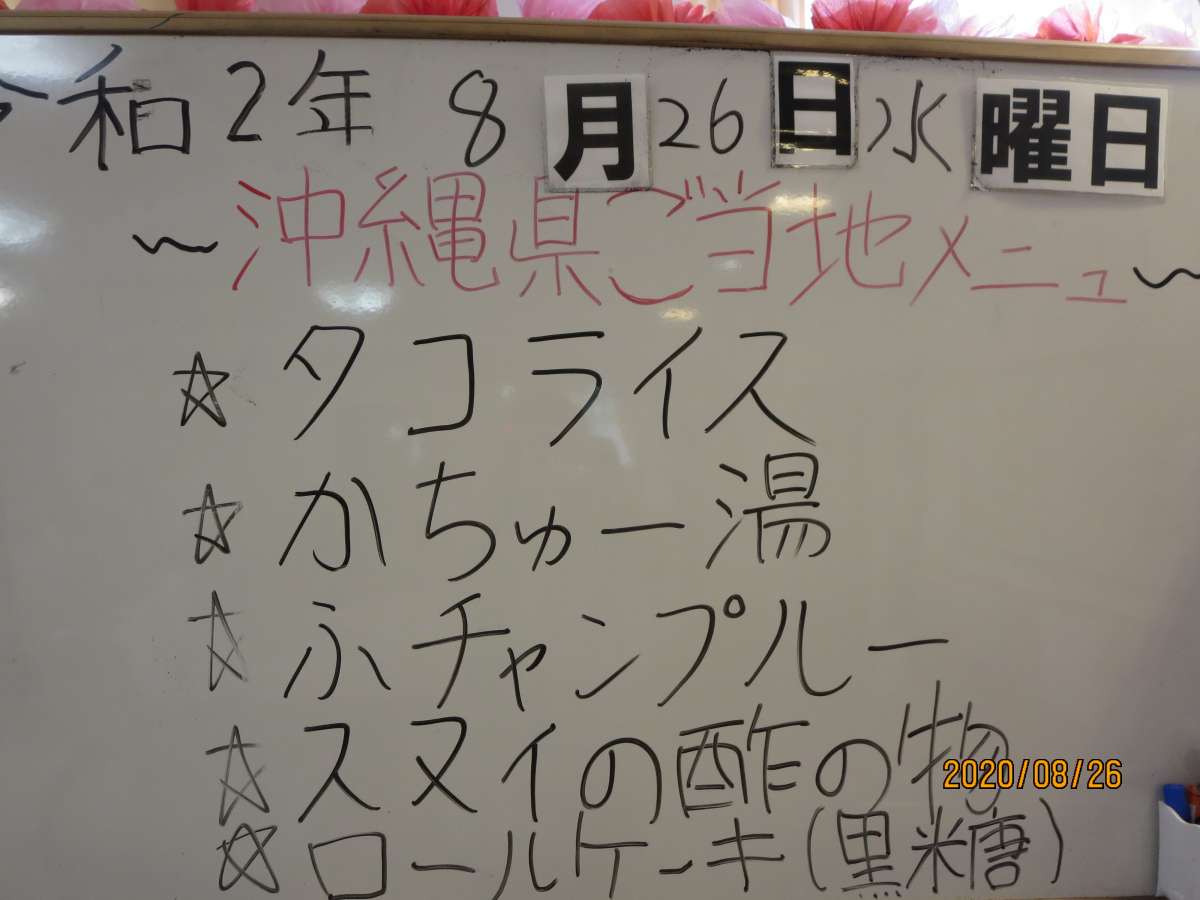 令和2年 8月26日水曜日
~沖縄県ご当地メニュ~
☆タコライス
☆かちゅー湯
☆ふチャンプルー
☆スヌイの酢の物
2020/08/26
☆ロールケーキ(黒糖)